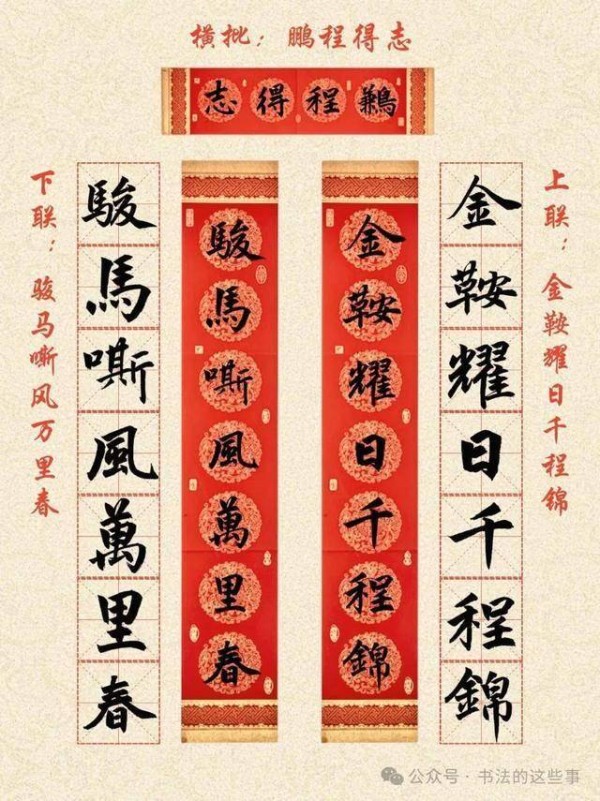 横批：鹏程得志
鶼程得志
上联：金鞍耀日千程锦
金鞍耀日千程錦
金鞍耀日千程錦
駿馬嘶風萬里春
駿馬嘶風萬里春
下联：骏马嘶风万里春
公众号·书法的这些事